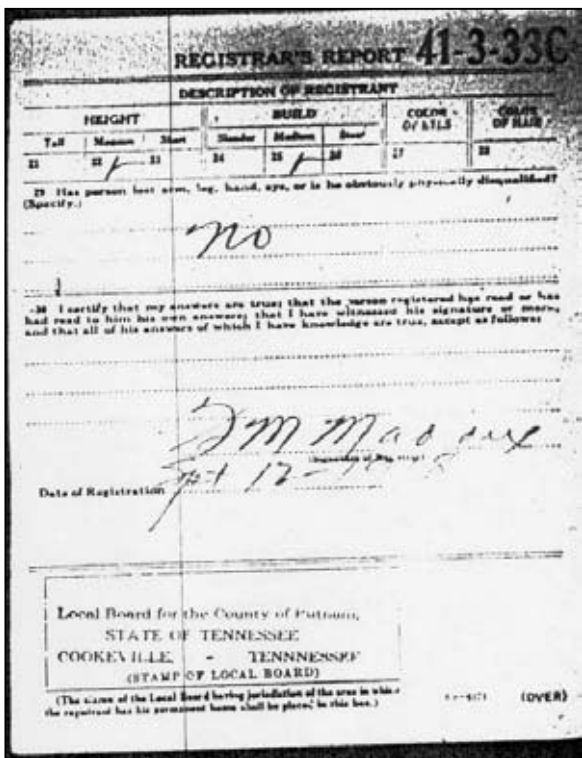 REGISTRAR'S REPORT 41-3-33C
DESCRIPTION OF REGISTRANT
HEIGHT BUILD COLOR OF EYES COLOR OF HAIR
Tall Medium Short Slender Medium Stout
21 22 23 24 25 26 27 28
29 Has person lost arm, leg, hand, eye, or is he obviously physically disqualified?
(Specify.)
no
30 I certify that my answers are true; that the person registered has read or has
had read to him his own answers; that I have witnessed his signature or mark,
and that all of his answers of which I have knowledge are true, except as follows:
(Signature of Registrar)
Date of Registration 12
Local Board for the County of Putnam,
STATE OF TENNESSEE
COOKEVILLE, - TENNNESSEE
(STAMP OF LOCAL BOARD)
(The stamp of the Local Board having jurisdiction of the area in which
the registrant has his permanent home shall be placed in this box.)
(OVER)